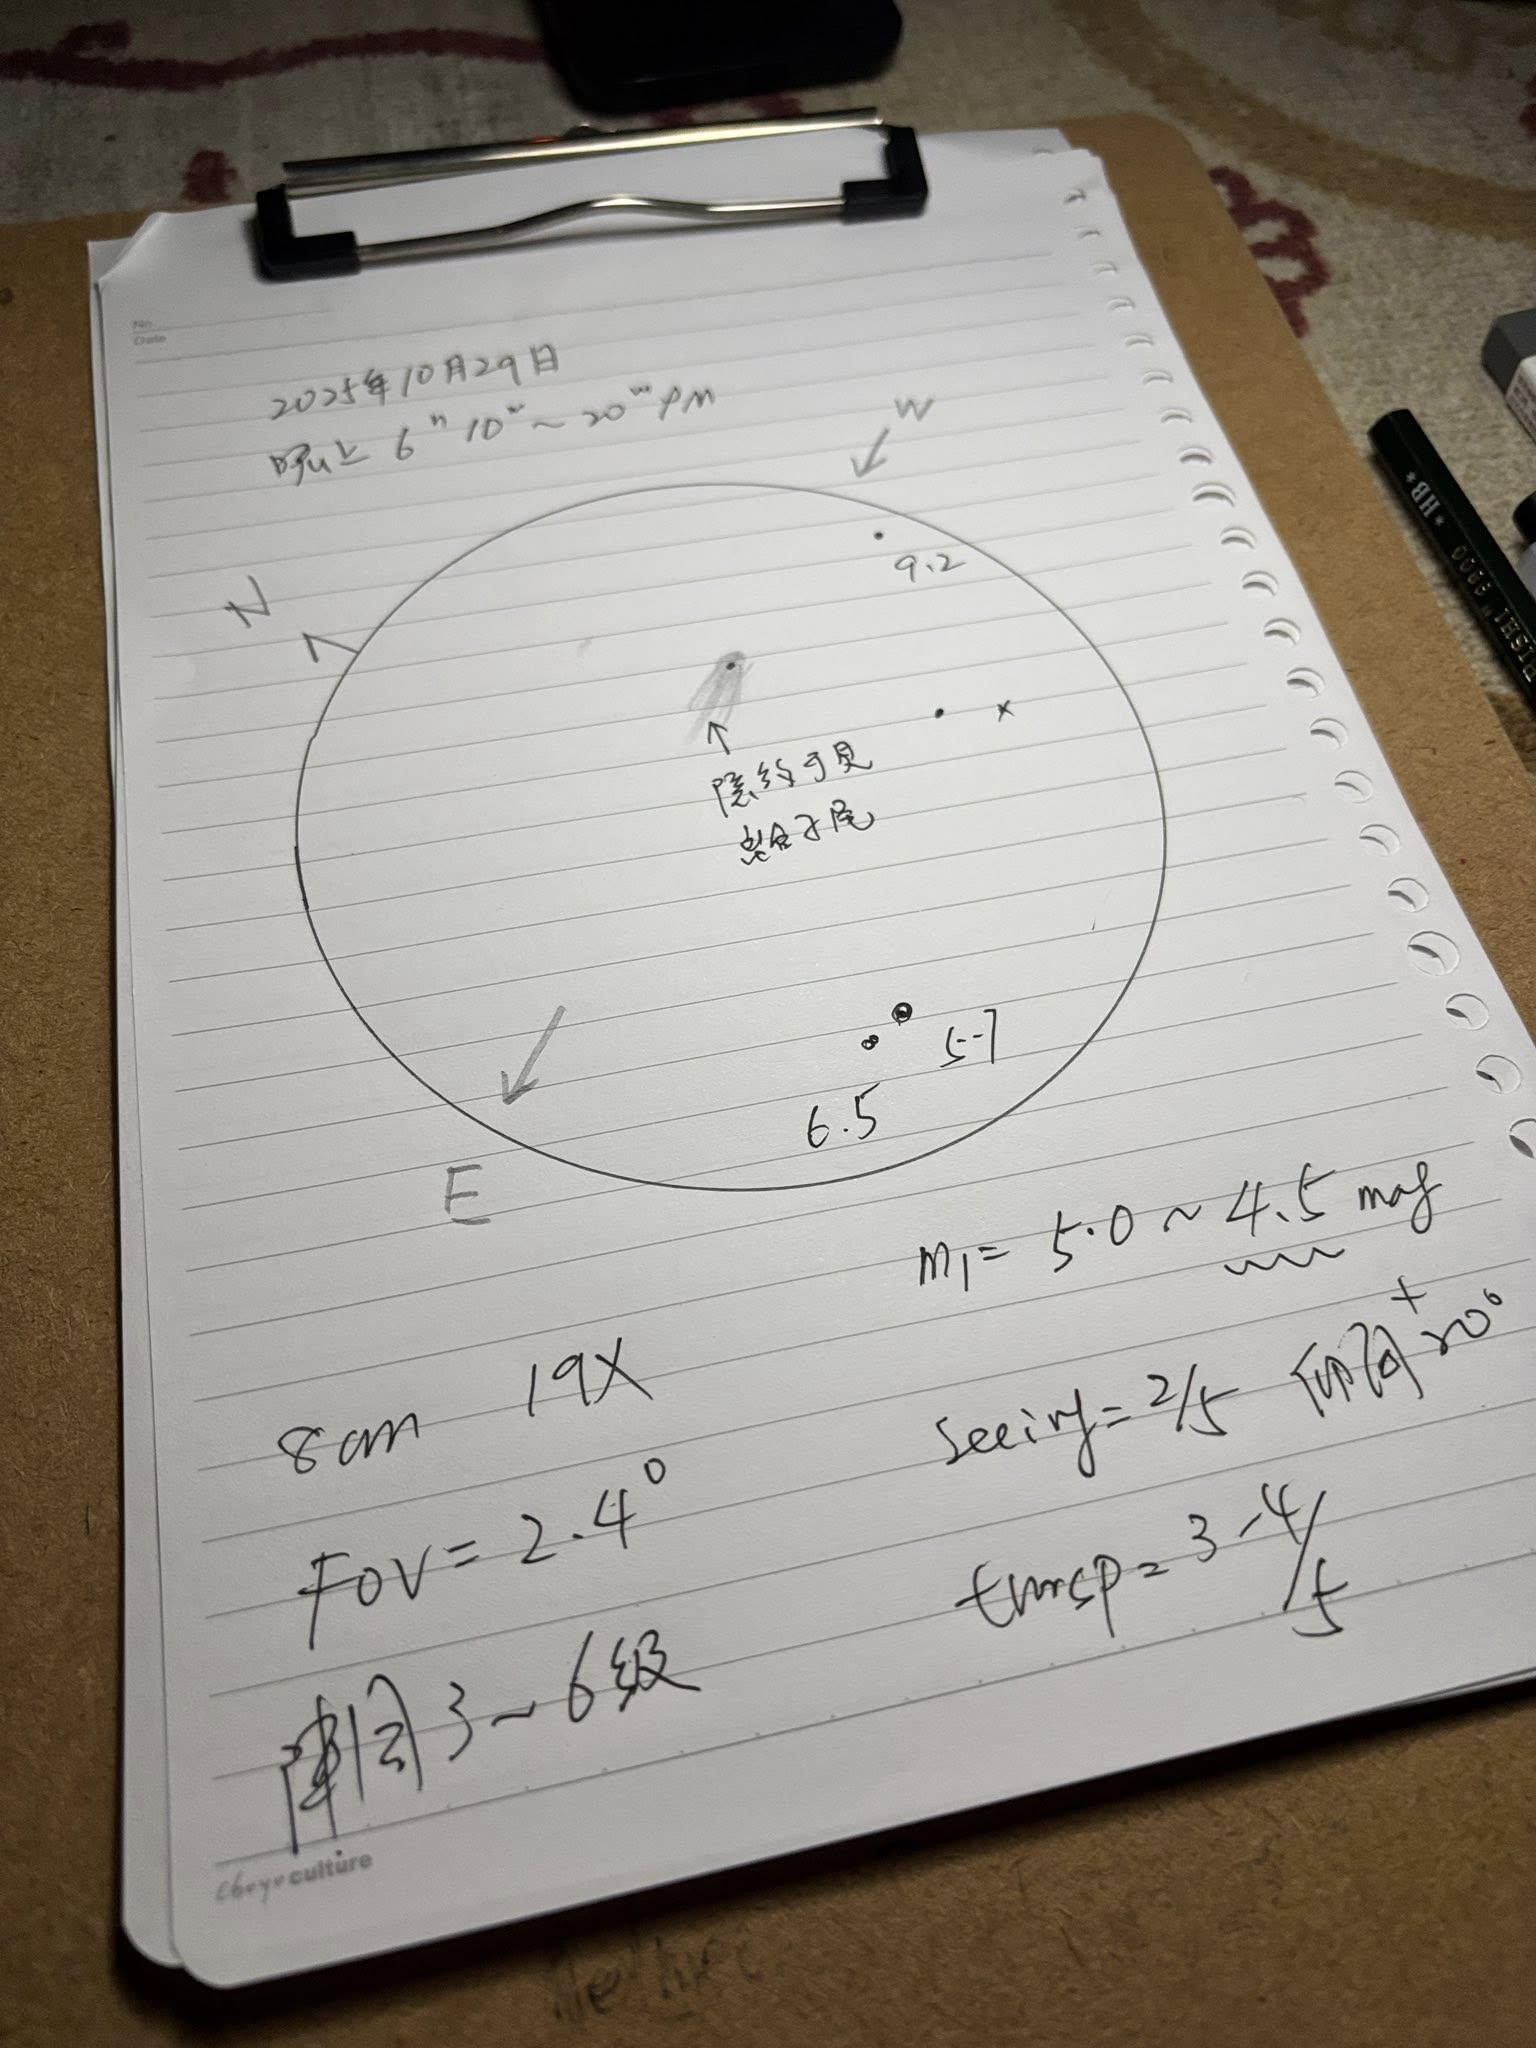 No.
Date
2025年10月29日
晚上 6ʰ 10ᵐ ~ 20ᵐ PM
W
N
9.2
x
隱約可見
彗尾
5.7
6.5
E
m₁= 5.0 ~ 4.5 mag
8cm 19X
seeing = 2/5 仰角 +20°
FOV = 2.4°
transp = 3-4/5
陣風 3~6級
culture
*HB*
9800